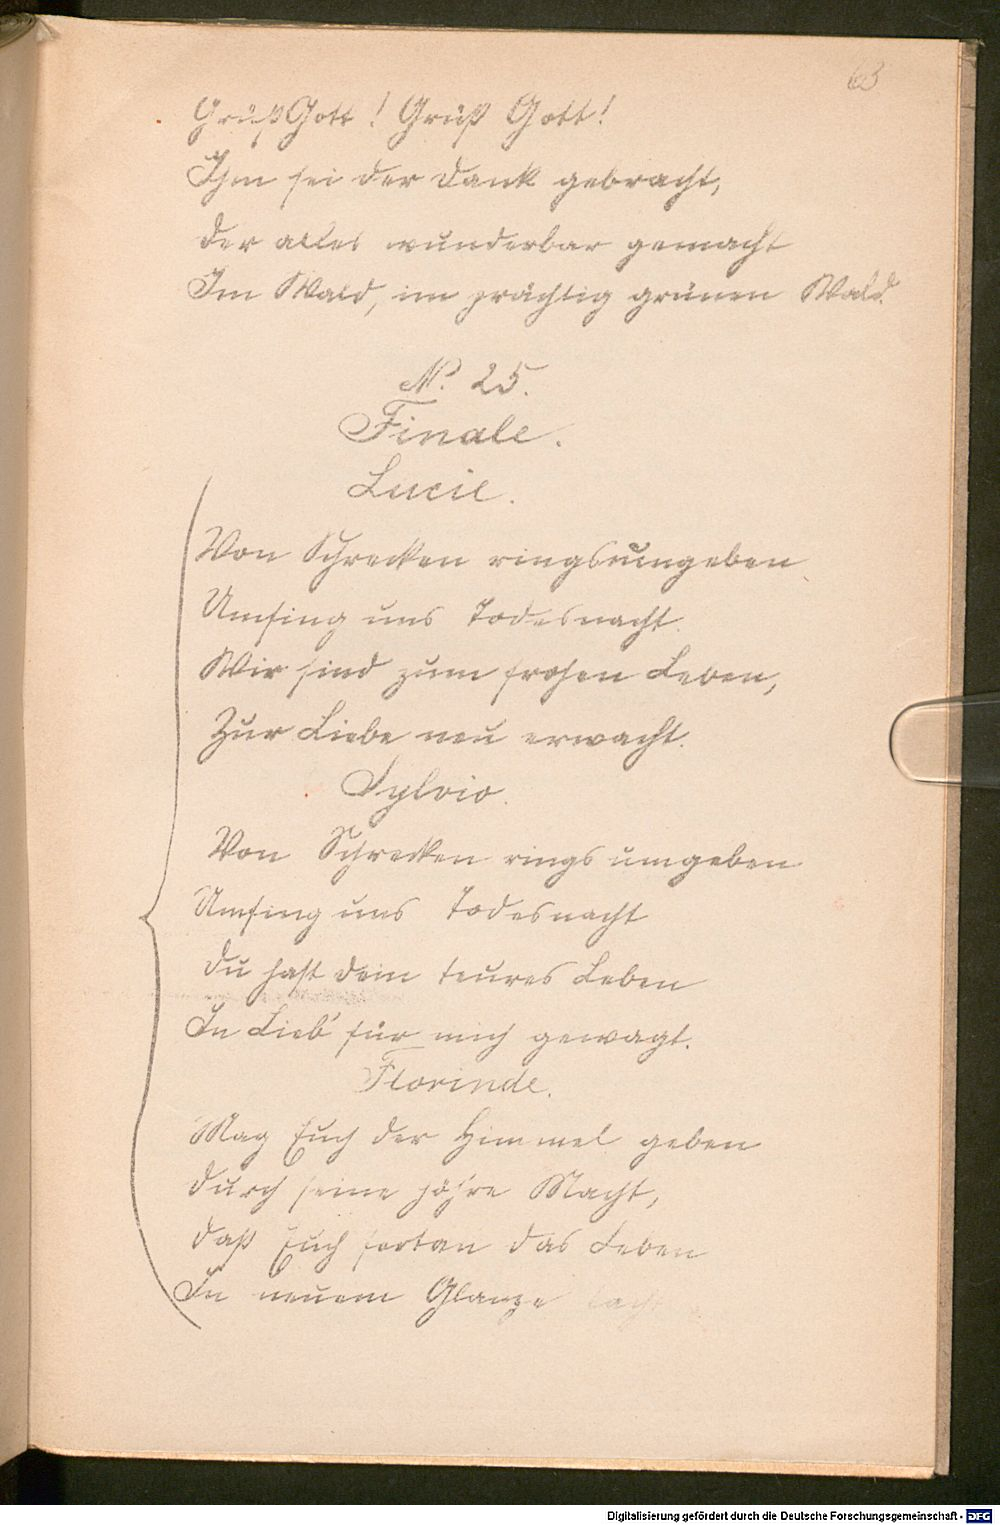 63
Grüß Gott! Grüß Gott!
Ihm sei der Dank gebracht,
der alles wunderbar gemacht
Im Wald, im prächtig grünen Wald.
No. 25.
Finale.
Lucil.
Von Schrecken rings umgeben
Umfing uns Todesnacht.
Wir sind zum frohen Leben,
Zur Liebe neu erwacht.
Sylvio.
Von Schrecken rings umgeben
Umfing uns Todesnacht
Du hast dein teures Leben
In Lieb' für mich gewagt.
Florinde.
Mag Euch der Himmel geben
Durch seine höh're Macht,
Daß Euch fortan das Leben
In neuem Glanze lacht
Digitalisierung gefördert durch die Deutsche Forschungsgemeinschaft - DFG